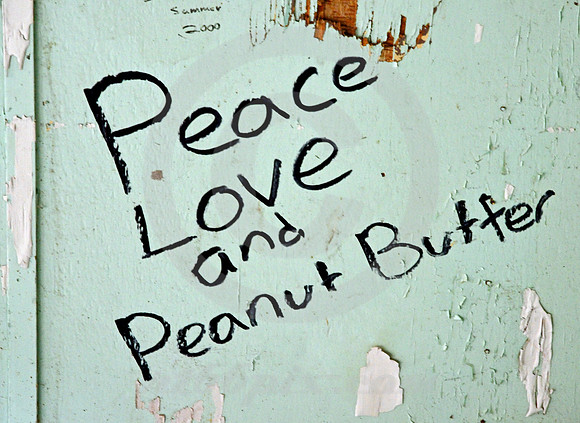 Summer
2000
Peace
Love
and
Peanut Butter